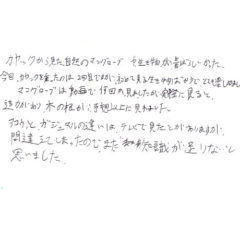 カヤックから見た自然のマングローブ
今日、カヤックを乗ったのは2回目ですが、初めて見る生き物ばかりでとても楽しめました
マングローブは動画で何回か見ましたが実際に見ると、
迫力があり木の根が予想以上に見れました。
アコウとガジュマルの違いは、テレビで見たことがありますが、
間違えてしまったので、まだまだ知識が足りないと
思いました。